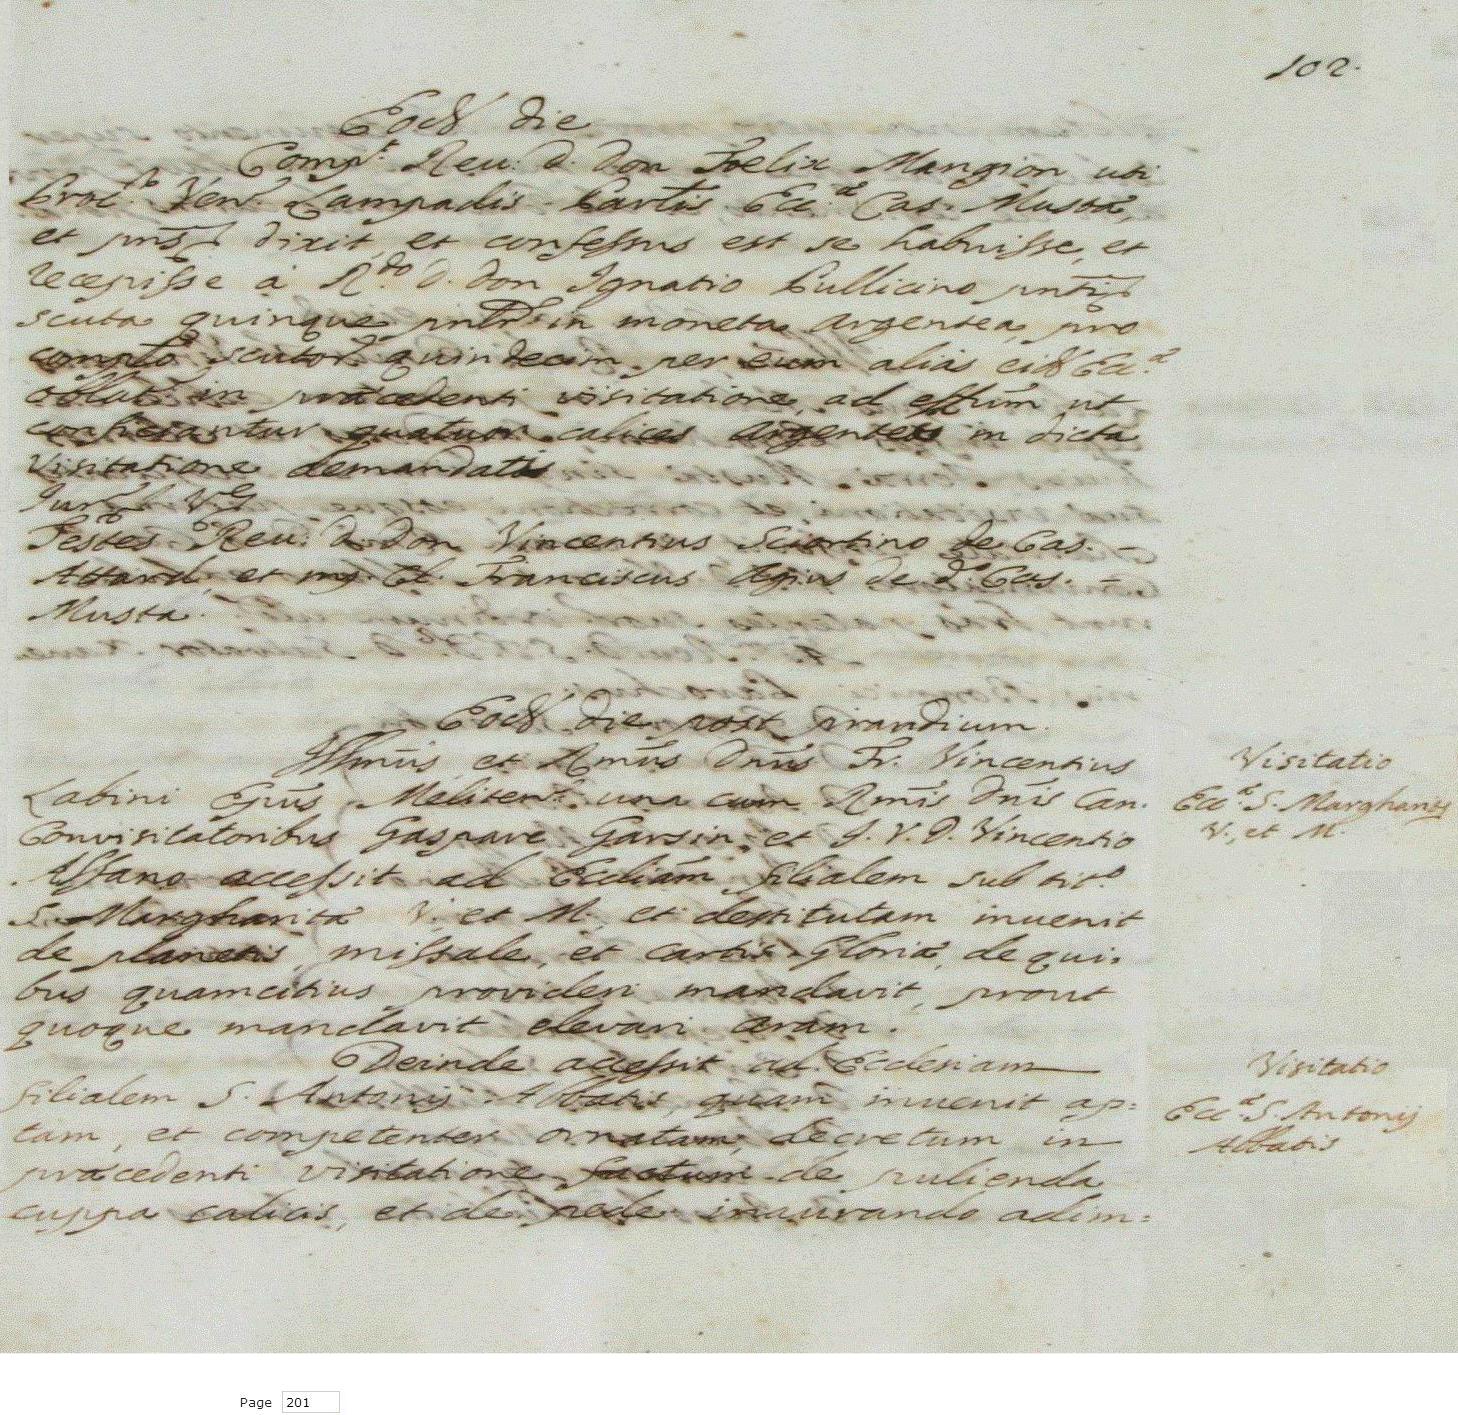 102.
Eod die
Comp.t Reu: D. Don Foelix Mangion uti
Proc.r Ven. Lampadis Parlis Ecc.æ Cas. Musta,
et dixit, et confessus est se habuisse, et
recepisse à R.do D. Don Ignatio Pullicino
scuta quinque in moneta argentea, pro
scutor. quindecim per eum alias eid Ecc.æ
oblat. in præcedenti visitatione, ad effum ut
conficerantur quatuor calices argentei in dicta
visitatione demandati
Testes Reu. D. Don Vincentius Sciortino de Cas. -
Attard, et mg. Cl. Franciscus Agius de d.o Cas. -
Musta.
Eod die post prandium.
Illmus, et Rmus Dnus Fr. Vincentius
Visitatio
Labini Epus Meliten. una cum Rmis Dnis Can.
Ecc.æ S. Margharitæ
Convisitatoribus Gaspare Garsin, et J. V. D. Vincentio
V., et M.
Assano accessit ad Eccliam filialem sub tit.o
S. Margharitæ V. et M. et destitutam inuenit
de planetis, missale, et cartis Gloriæ, de qui-
bus quamcitius provideri mandavit, prout
quoque mandavit elevari aram.
Deinde accessit ad Ecclesiam
Visitatio
filialem S. Antonij Abbatis, quam inuenit ap=
Ecc.æ S. Antonij
tam, et competenter ornatam, decretum in
Abbatis
præcedenti visitatione factum de pulienda
cuppa calicis, et de pede inaurando adim=
Page 201